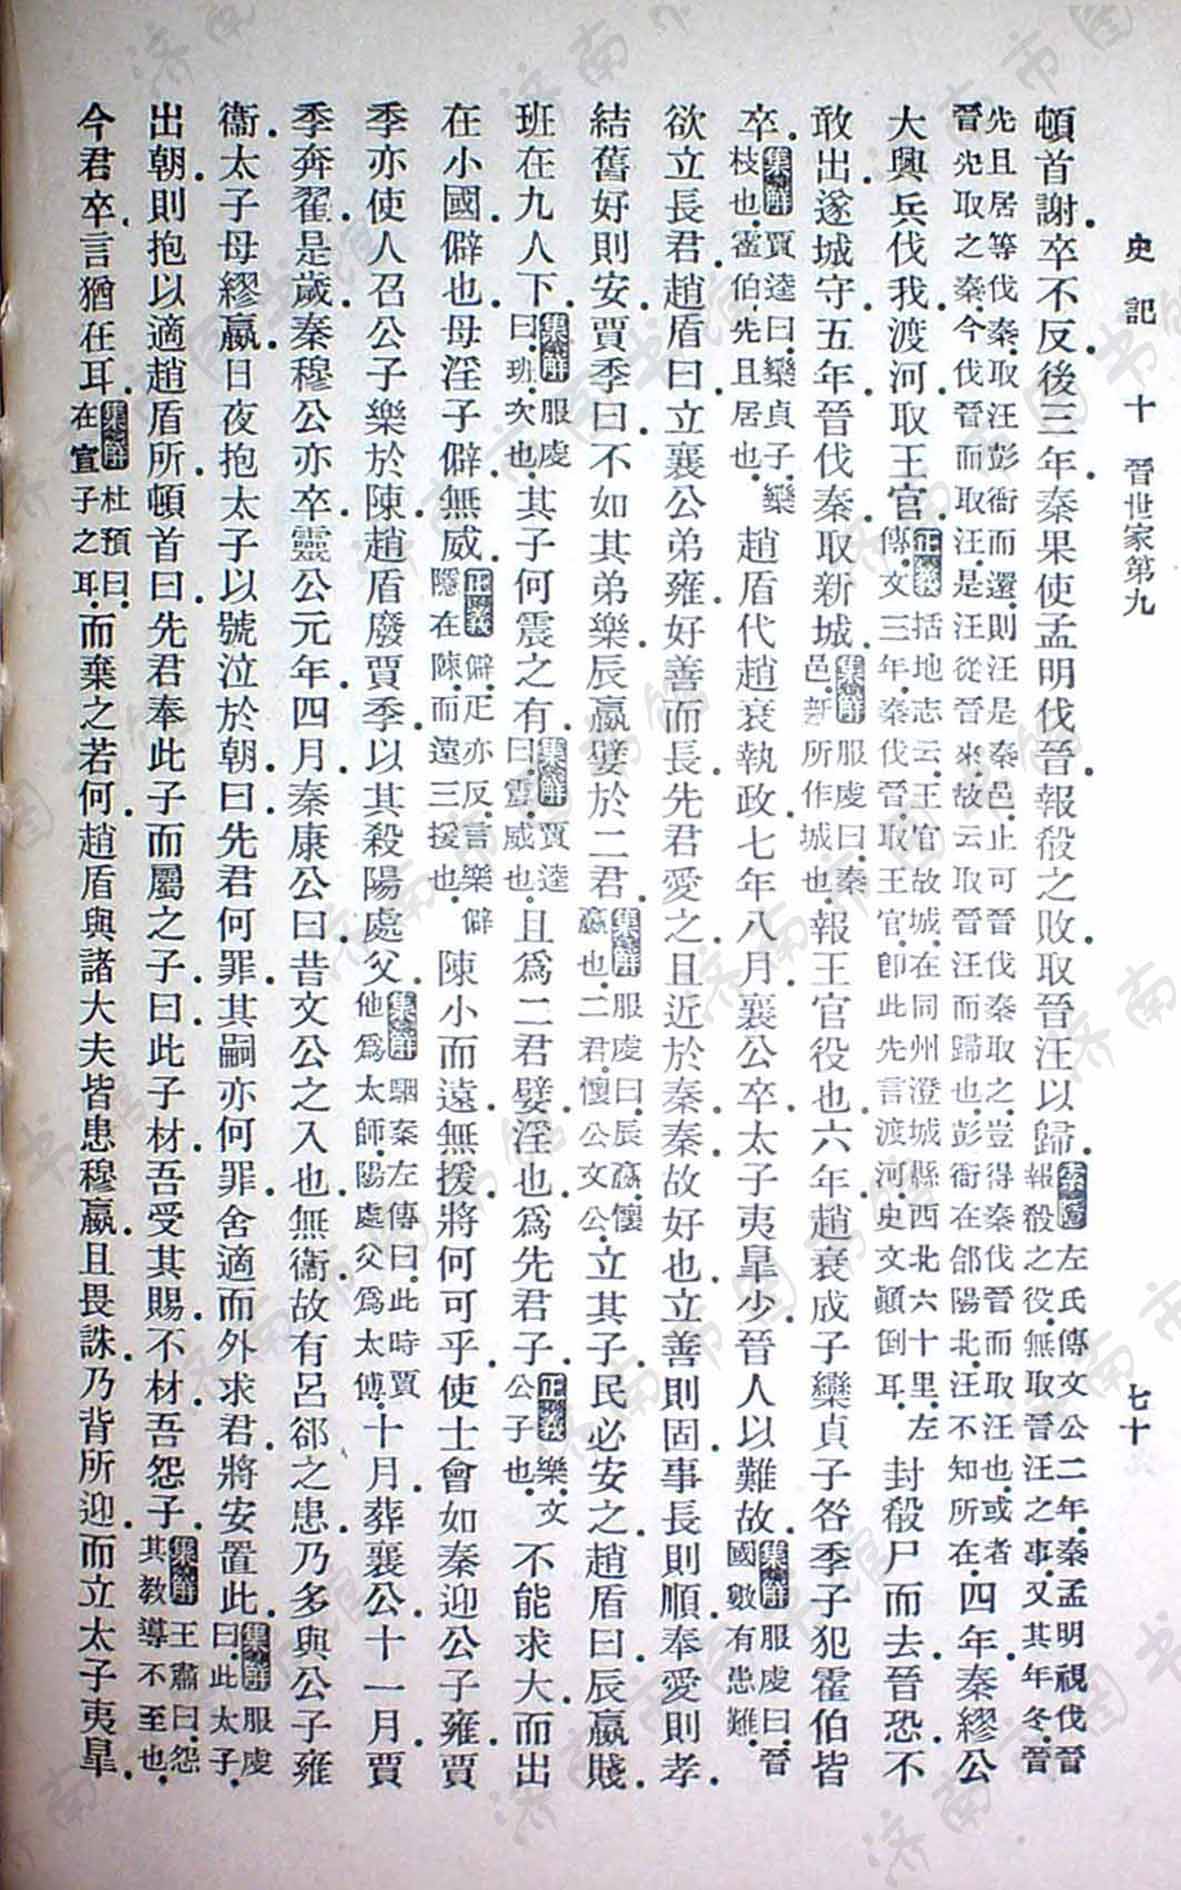 史記 十 晉世家第九 七十
頓首謝卒不反後三年秦果使孟明伐晉報殽之敗取晉汪以歸索隱左氏傳文公二年秦孟明視伐晉報殽之役無取晉汪之事又其年冬晉
先且居等伐秦取汪彭衙而還則汪是秦邑止可晉伐秦取之豈得秦伐晉而取汪也或者晉先取之秦今伐晉而取汪是汪從晉來故云取晉汪而歸也彭衙在郃陽北汪不知所在四年秦繆公
大興兵伐我渡河取王官正義括地志云王官故城在同州澄城縣西北六十里左傳文三年秦伐晉取王官卽此先言渡河史文顚倒耳封殽尸而去晉恐不
敢出遂城守五年晉伐秦取新城集解服虔曰秦邑新所作城也報王官役也六年趙衰成子欒貞子咎季子犯霍伯皆
卒集解賈逵曰欒貞子欒枝也霍伯先且居也趙盾代趙衰執政七年八月襄公卒太子夷臯少晉人以難故集解服虔曰晉國數有患難
欲立長君趙盾曰立襄公弟雍好善而長先君愛之且近於秦秦故好也立善則固事長則順奉愛則孝
結舊好則安賈季曰不如其弟樂辰嬴嬖於二君集解服虔曰辰嬴懷嬴也二君懷公文公立其子民必安之趙盾曰辰嬴賤
班在九人下集解服虔曰班次也其子何震之有集解賈逵曰震威也且爲二君嬖淫也爲先君子正義樂文公子也不能求大而出
在小國僻也母淫子僻無威正義僻疋亦反言樂僻隱在陳而遠三援也陳小而遠無援將何可乎使士會如秦迎公子雍賈
季亦使人召公子樂於陳趙盾廢賈季以其殺陽處父集解駰案左傳曰此時賈他爲太師陽處父爲太傅十月葬襄公十一月賈
季奔翟是歲秦穆公亦卒靈公元年四月秦康公曰昔文公之入也無衞故有呂郤之患乃多與公子雍
衞太子母繆嬴日夜抱太子以號泣於朝曰先君何罪其嗣亦何罪舍適而外求君將安置此集解服虔曰此太子
出朝則抱以適趙盾所頓首曰先君奉此子而屬之子曰此子材吾受其賜不材吾怨子集解王肅曰怨其教導不至也
今君卒言猶在耳集解杜預曰在宣子之耳而棄之若何趙盾與諸大夫皆患穆嬴且畏誅乃背所迎而立太子夷臯